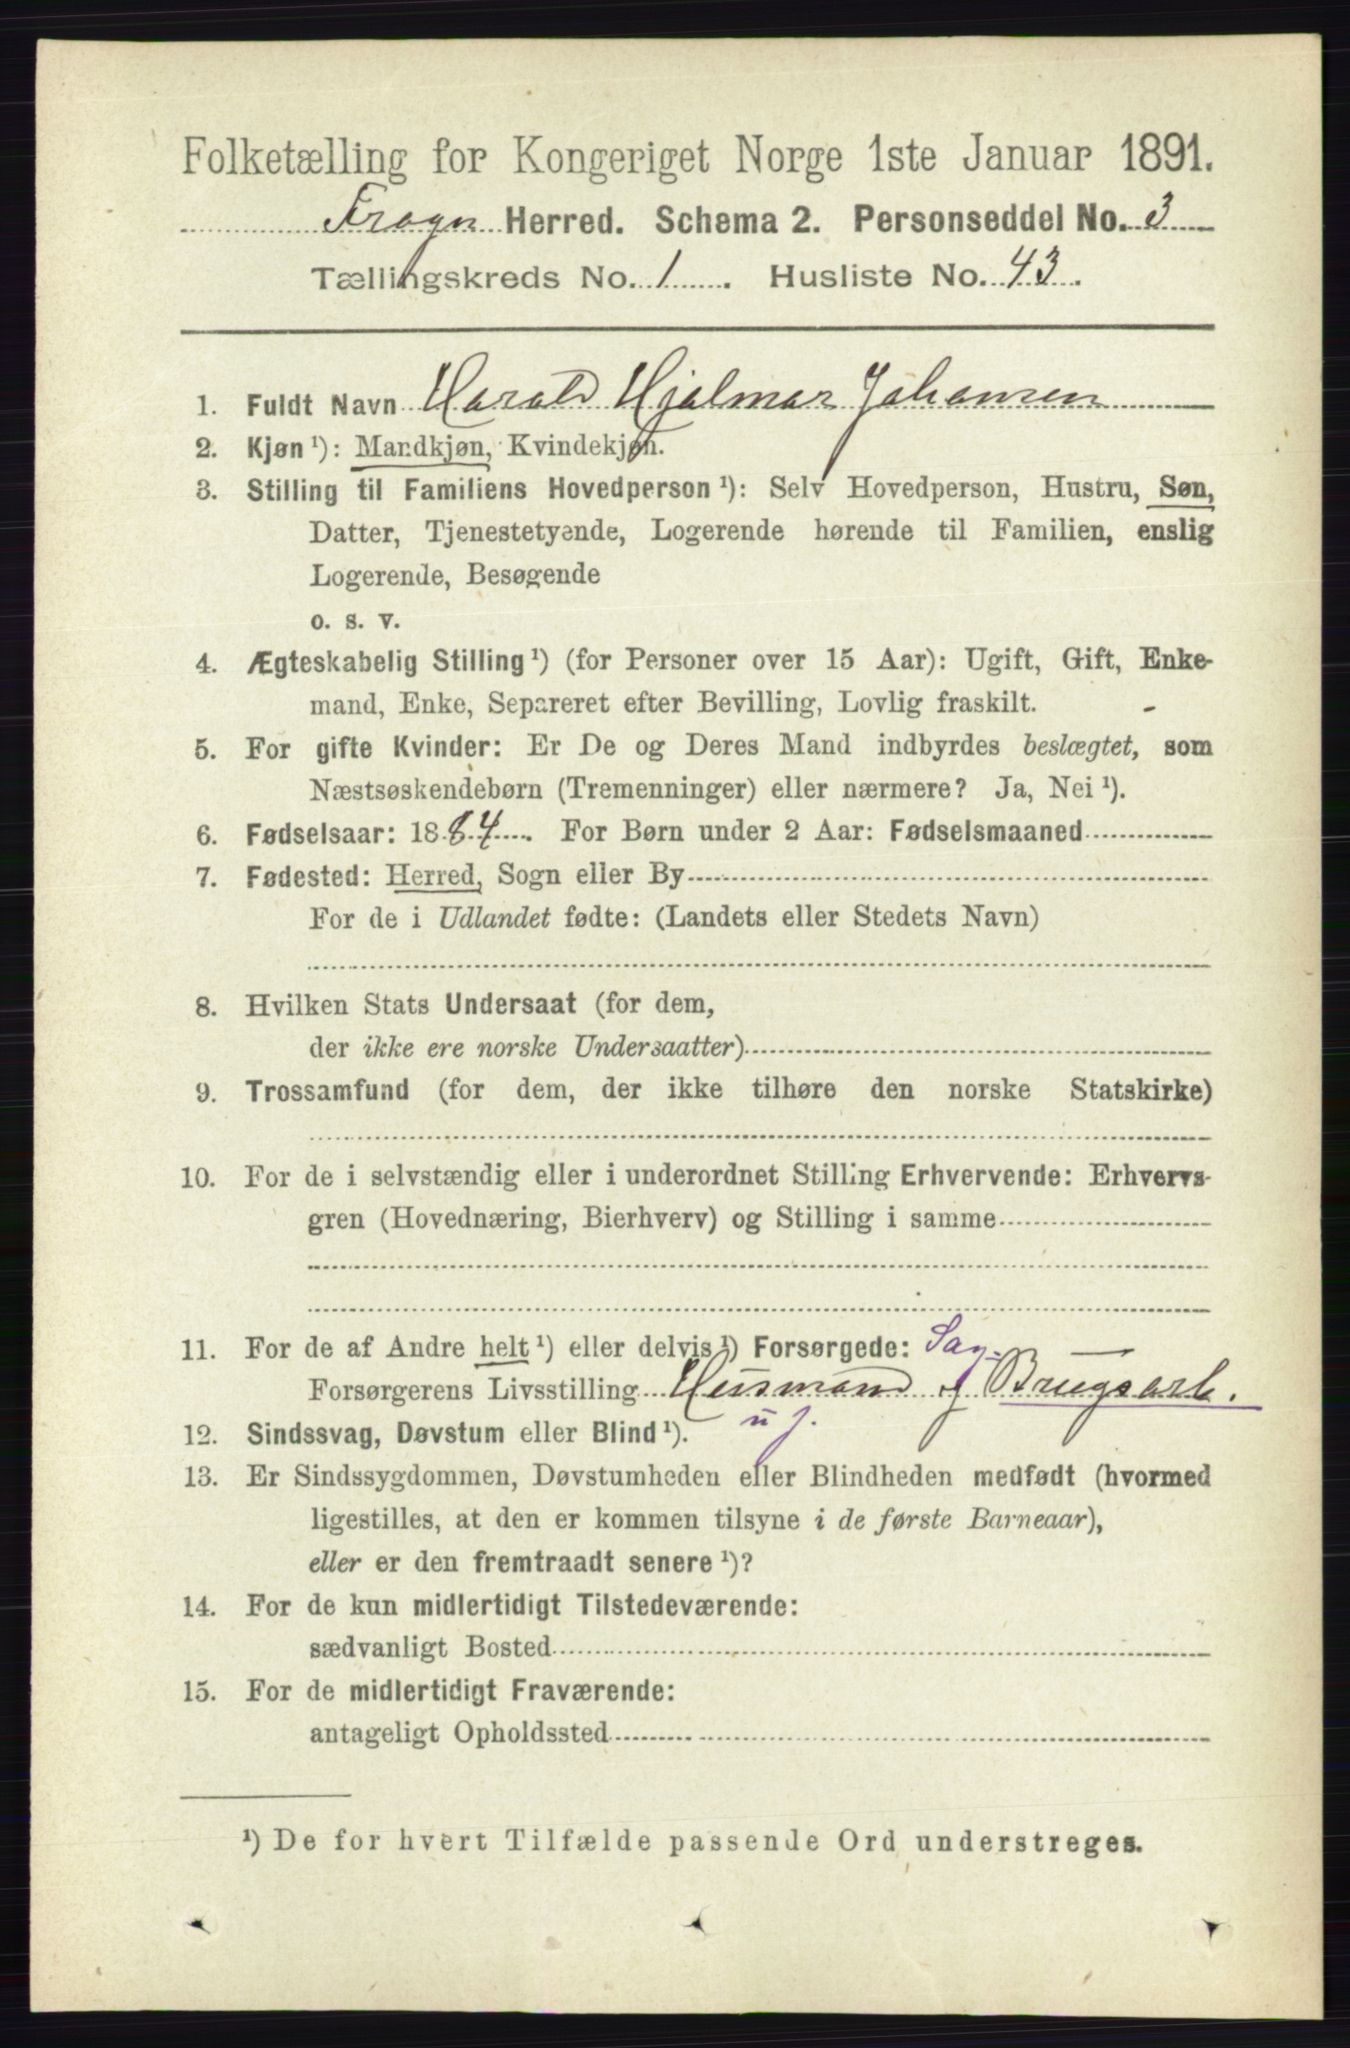 Folketælling for Kongeriget Norge 1ste Januar 1891.
Frogn Herred. Schema 2. Personseddel No. 3
Tællingskreds No. 1. Husliste No. 43.
1. Fuldt Navn Harald Hjalmar Johansen
2. Kjøn ¹): Mandkjøn, Kvindekjøn.
3. Stilling til Familiens Hovedperson ¹): Selv Hovedperson, Hustru, Søn,
Datter, Tjenestetyende, Logerende hørende til Familien, enslig
Logerende, Besøgende
o. s. v.
4. Ægteskabelig Stilling ¹) (for Personer over 15 Aar): Ugift, Gift, Enke-
mand, Enke, Separeret efter Bevilling, Lovlig fraskilt. -
5. For gifte Kvinder: Er De og Deres Mand indbyrdes beslægtet, som
Næstsøskendebørn (Tremenninger) eller nærmere? Ja, Nei ¹).
6. Fødselsaar: 1884. For Børn under 2 Aar: Fødselsmaaned
7. Fødested: Herred, Sogn eller By
For de i Udlandet fødte: (Landets eller Stedets Navn)
8. Hvilken Stats Undersaat (for dem,
der ikke ere norske Undersaatter)
9. Trossamfund (for dem, der ikke tilhøre den norske Statskirke)
10. For de i selvstændig eller i underordnet Stilling Erhvervende: Erhvervs-
gren (Hovednæring, Bierhverv) og Stilling i samme
11. For de af Andre helt ¹) eller delvis ¹) Forsørgede: Sag-
Forsørgerens Livsstilling Husmand & Brugsarb.
u j.
12. Sindssvag, Døvstum eller Blind ¹).
13. Er Sindssygdommen, Døvstumheden eller Blindheden medfødt (hvormed
ligestilles, at den er kommen tilsyne i de første Barneaar),
eller er den fremtraadt senere ¹)?
14. For de kun midlertidigt Tilstedeværende:
sædvanligt Bosted
15. For de midlertidigt Fraværende:
antageligt Opholdssted
¹) De for hvert Tilfælde passende Ord understreges.